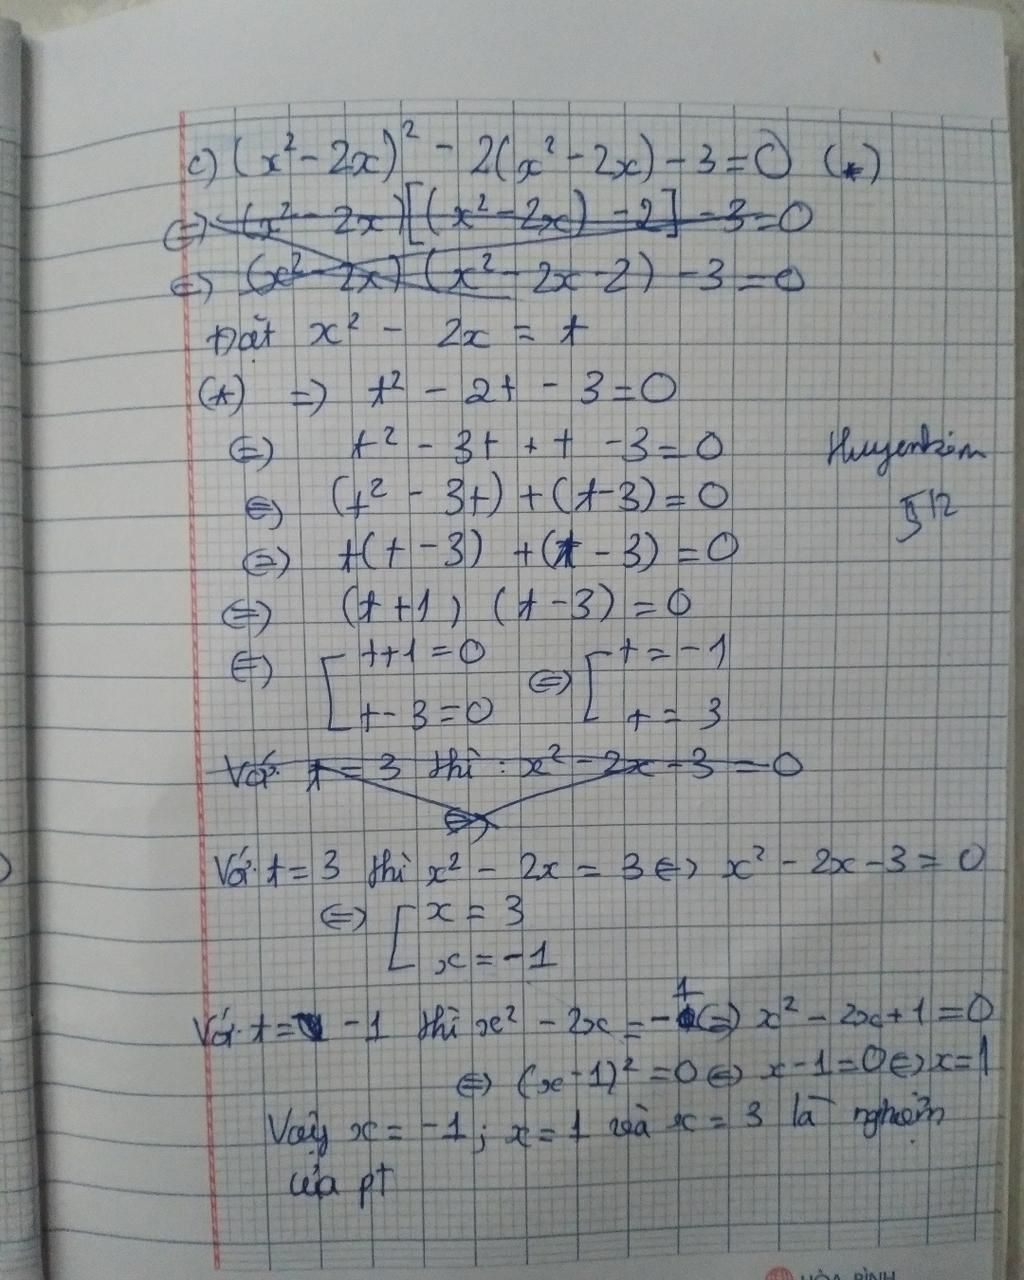 c) (x² - 2x)² - 2(x² - 2x) - 3 = 0 (*)
⇔ (x² - 2x)[(x² - 2x) - 2] - 3 = 0
⇔ (x² - 2x)(x² - 2x - 2) - 3 = 0
Đặt x² - 2x = t
(*) ⇒ t² - 2t - 3 = 0
⇔ t² - 3t + t - 3 = 0
⇔ (t² - 3t) + (t - 3) = 0
⇔ t(t - 3) + (t - 3) = 0
⇔ (t + 1) (t - 3) = 0
⇔ [ t + 1 = 0 ⇔ [ t = -1
t - 3 = 0 t = 3
Với t = 3 thì : x² - 2x - 3 = 0
⇔
Với t = 3 thì x² - 2x = 3 ⇔ x² - 2x - 3 = 0
⇔ [ x = 3
x = -1
Với t = -1 thì x² - 2x = -1 ⇔ x² - 2x + 1 = 0
⇔ (x - 1)² = 0 ⇔ x - 1 = 0 ⇔ x = 1
Vậy x = -1; x = 1 và x = 3 là nghiệm
của pt
HÒA BÌNH